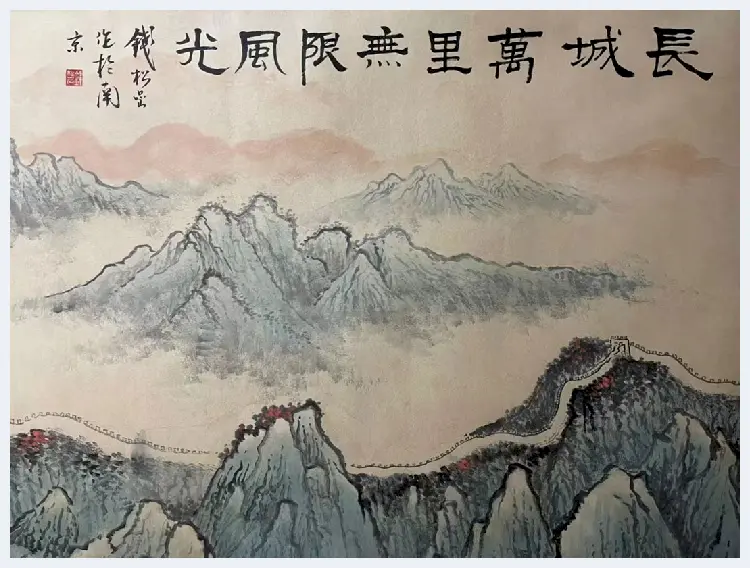 長城萬里無限風光
錢松嵒
作於南
京